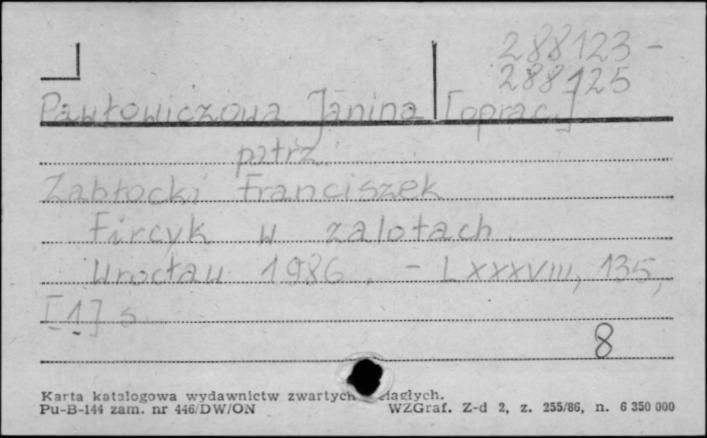 288123 -
288125
Pawłowiczowa Janina [oprac.]
patrz
Zabłocki Franciszek
Fircyk w zalotach.
Wrocław 1986. - LXXXVIII, 135,
[1] s
8
Karta katalogowa wydawnictw zwartych ciągłych.
Pu-B-144 zam. nr 446/DW/ON WZGraf. Z-d 2, z. 255/86, n. 6 350 000